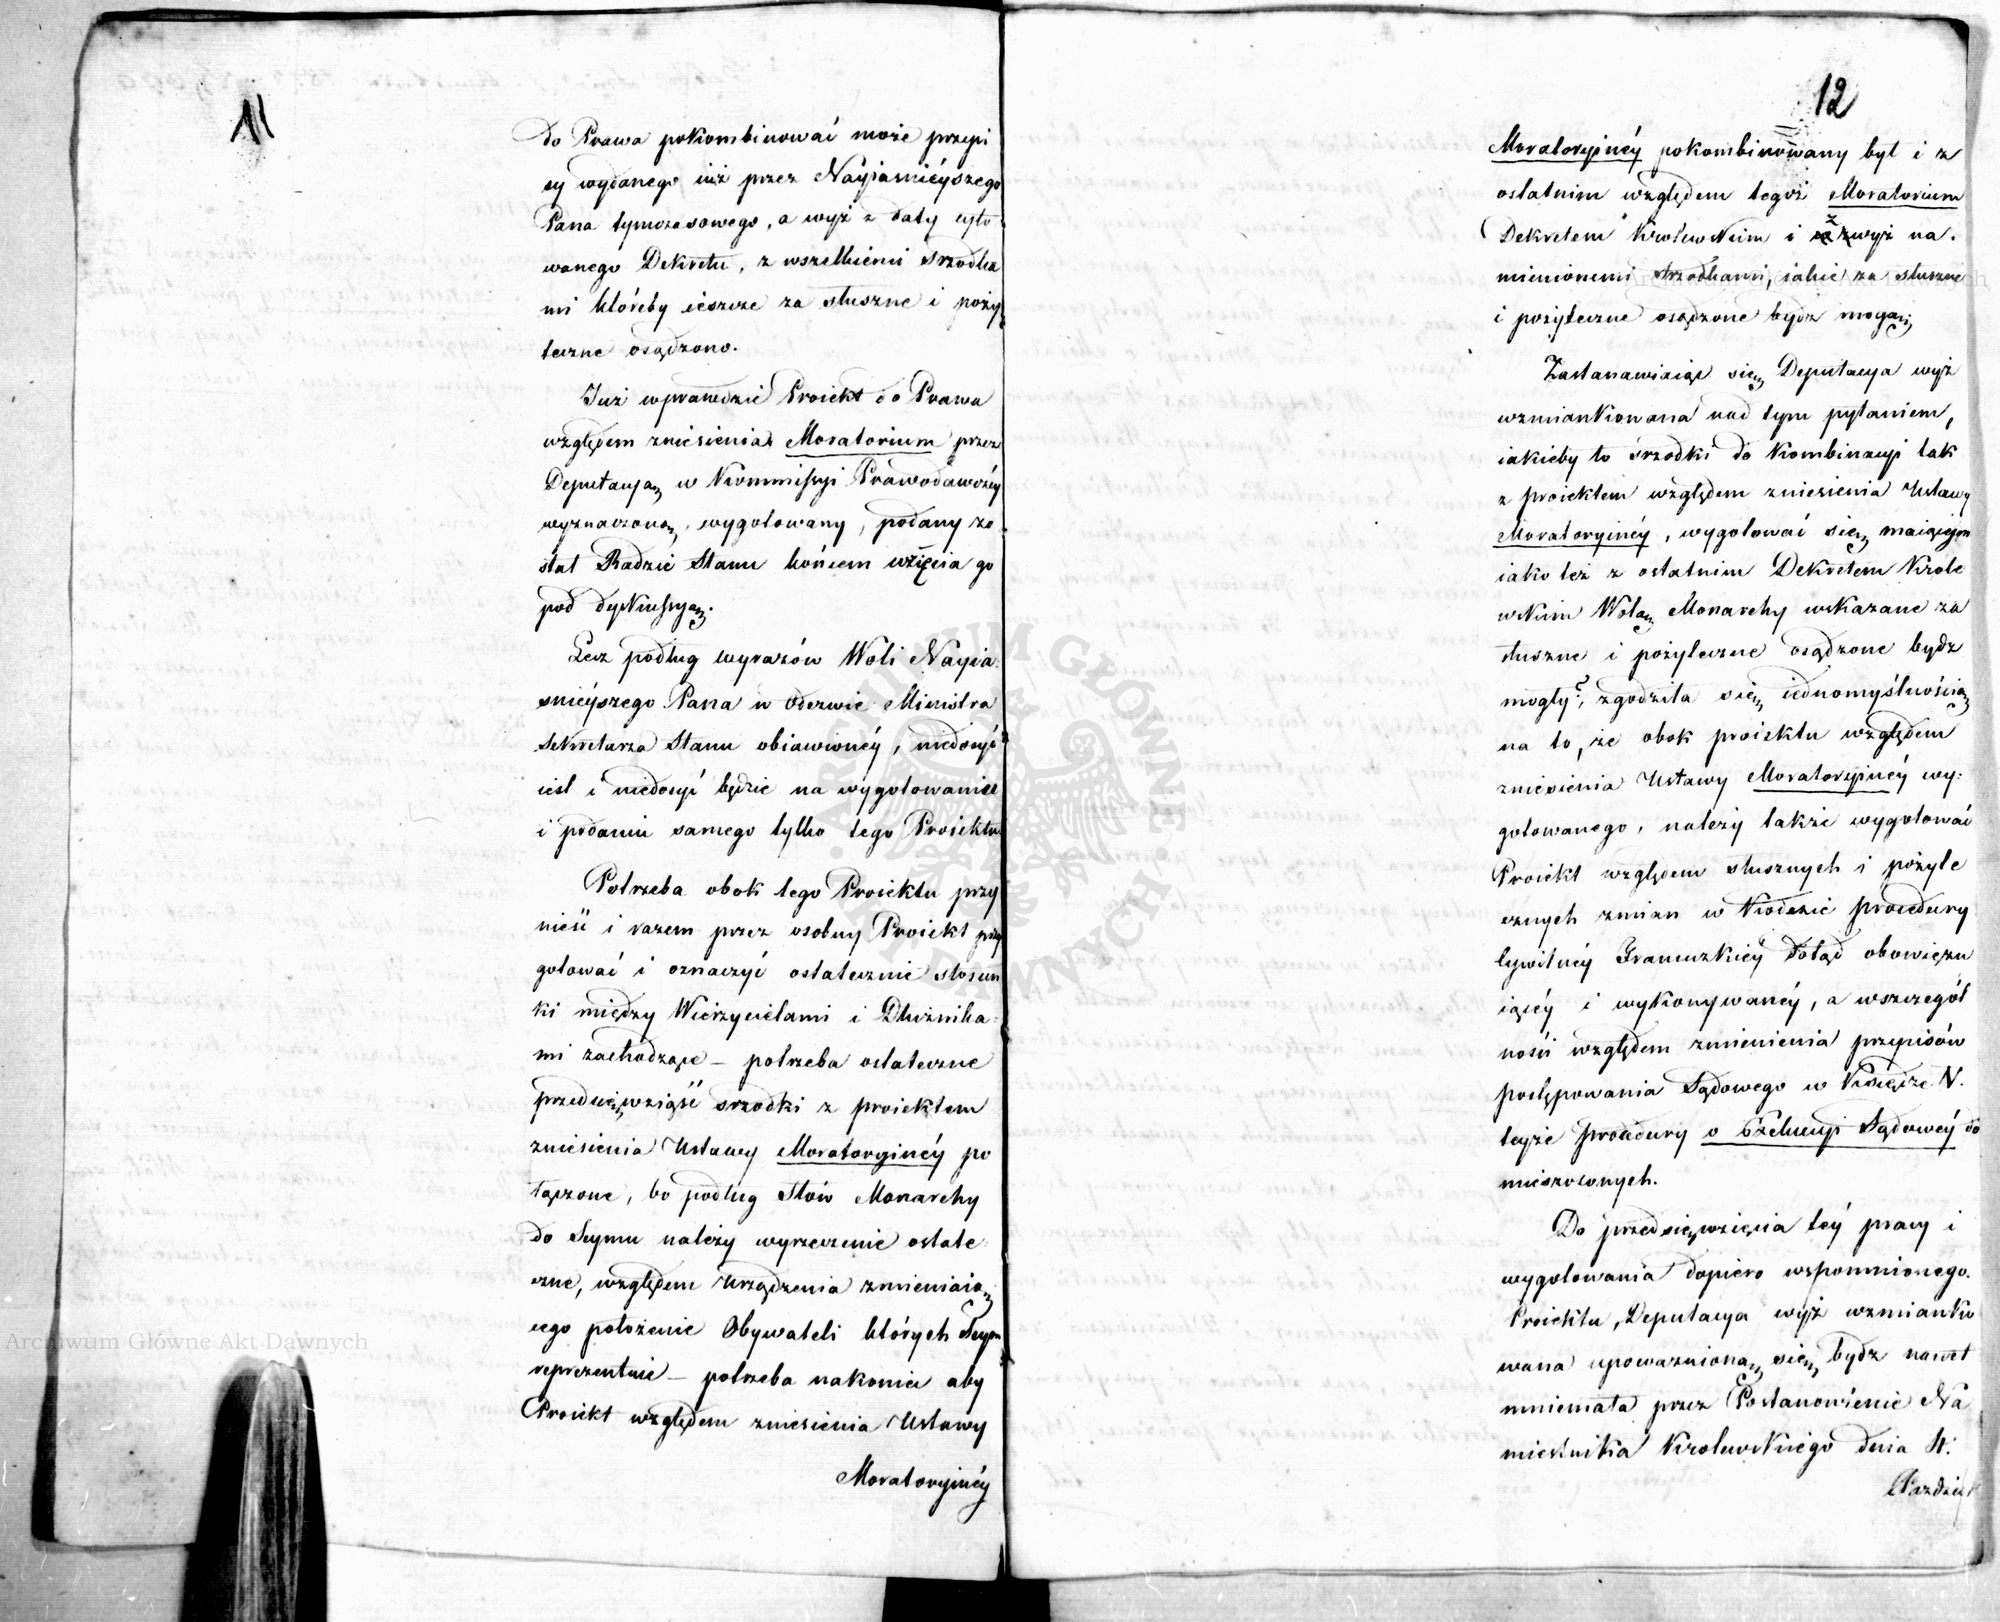 11
do Prawa pokombinować może przepi
sy wydanego iuż przez Nayiaśnieyszego
Pana tymczasowego, a wyż z daty cyto
wanego Dekretu, z wszelkiemi srzodka
mi któreby ieszcze za słuszne i poży
teczne osądzono.
Już wprawdzie Proiekt do Prawa
względem zniesienia Moratorium przez
Deputacyą w Kommissyi Prawodawczéy
wyznaczoną, wygotowany, podany zo
stał Radzie Stanu końcem wzięcia go
pod dyskussyą.
Lecz podług wyrazów Woli Nayia
śnieyszego Pana w Odezwie Ministra
Sekretarza Stanu obiawionéy, niedosyć
iest i niedosyć będzie na wygotowaniu
i podaniu samego tylko tego Proiektu
Potrzeba obok tego Proiektu przy
nieść i razem przez osobny Proiekt przy
gotować i oznaczyć ostatecznie stosun
ki między Wierzycielami i Dłużnika
mi zachodzące – potrzeba ostateczne
przedsięwziąść srzodki z proiektem
zniesienia Ustawy Moratoryinéy po
łączone, bo podług słów Monarchy
do Seymu należy wyrzeczenie ostate
czne, względem Urządzenia zmieniaią
cego położenie Obywateli których Seym
reprezentuie – potrzeba nakoniec aby
Proiekt względem zniesienia Ustawy
Moratoryinéy
12
Moratoryinéy pokombinowany był i z
ostatnim względem tegoż Moratorium
Dekretem Krolewskim i z wyż na
mienionemi srzodkami, iakie za słuszne
i pożyteczne osądzone bydz mogą;
Zastanawiaiąc się Deputacya wyż
wzmiankowana nad tym pytaniem,
iakieby to srzodki do kombinacyi tak
z proiektem względem zniesienia Ustawy
Moratoryinéy, wygotować się maiącym
iako też z ostatnim Dekretem Króle
wskim Wolą Monarchy wskazane za
słuszne i pożyteczne osądzone bydz
mogły? zgodziła się iednomyślnością
na to, że obok proiektu względem
zniesienia Ustawy Moratoryinéy wy
gotowanego, należy także wygotować
Proiekt względem słusznych i pożyte
cznych zmian w Kodexie procedury
cywilnéy Francuzkiéy dotąd obowięzu
iącéy i wykonywanéy, a wszczegól
ności względem zmienienia przepisów
postępowania Sądowego w Księdze V.
teyże procedury o Exekucyi Sądowéy do
mieszczonych.
Do przedsięwzięcia téy pracy i
wygotowania dopiero wspomnionego
Proiektu, Deputacya wyż wzmianko
wana upoważnioną się bydz nawet
mniemała przez Postanowienie Na
miestnika Krolewskiego dnia 4.
Paździer
Archiwum Główne Akt Dawnych
Archiwum Główne Akt Dawnych
ARCHIWUM GŁÓWNE AKT DAWNYCH